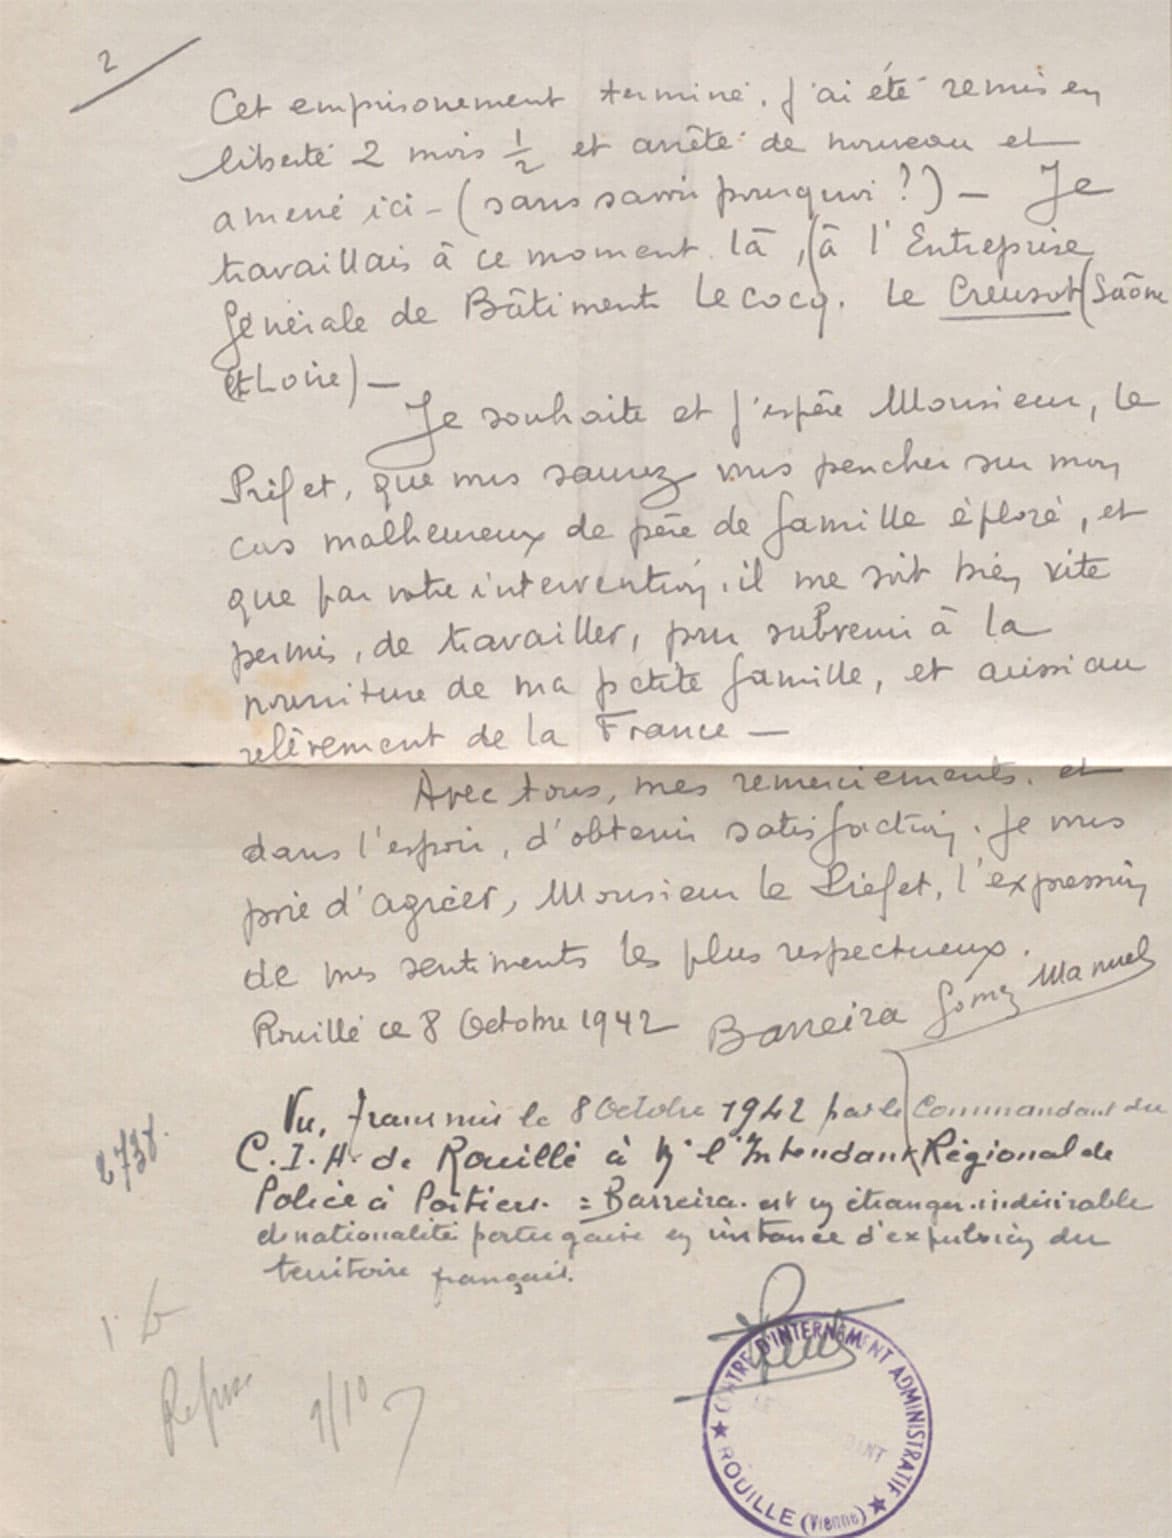 2
Cet emprisonement terminé. J'ai été remis en
liberté 2 mois 1/2 et arrêté de nouveau et
amené ici - (sans savoir pourquoi ?) - Je
travaillais à ce moment là, (à l'Entreprise
Générale de Bâtiment Lecocq. Le Creusot (Saône
et Loire) -
Je souhaite et j'espère Monsieur, le
Préfet, que vous saurez vous pencher sur mon
cas malheureux de père de famille éploré, et
que par votre intervention, il me soit bien vite
permis, de travailler, pour subvenir à la
nourriture de ma petite famille, et aussi au
relèvement de la France -
Avec tous, mes remerciements. et
dans l'espoir, d'obtenir satisfaction. Je vous
prie d'agréer, Monsieur le Préfet, l'expression
de mes sentiments les plus respectueux.
Rouillé ce 8 Octobre 1942 Barreira Gomez Manuel
Vu, transmis le 8 Octobre 1942 par le Commandant du
C.I.A. de Rouillé à M. l'Intendant Régional de
Police à Poitiers. = Barreira. est un étranger indésirable
de nationalité portugaise en instance d'expulsion du
territoire français.
2738.
Refus
9/10
CENTRE D'INTERNEMENT ADMINISTRATIF
ROUILLE (Vienne)